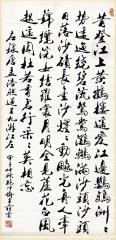 昔登江上黃鶴樓遥愛江中鸚鵡洲洲
勢逶迤繞碧流鴛鴦鸂鶒滿灘頭灘頭
日落沙磧長金沙熠熠動飆光舟人牽
錦纜浣女結羅裳月明全見蘆花白風
起遥聞杜若香君行采采莫相忘